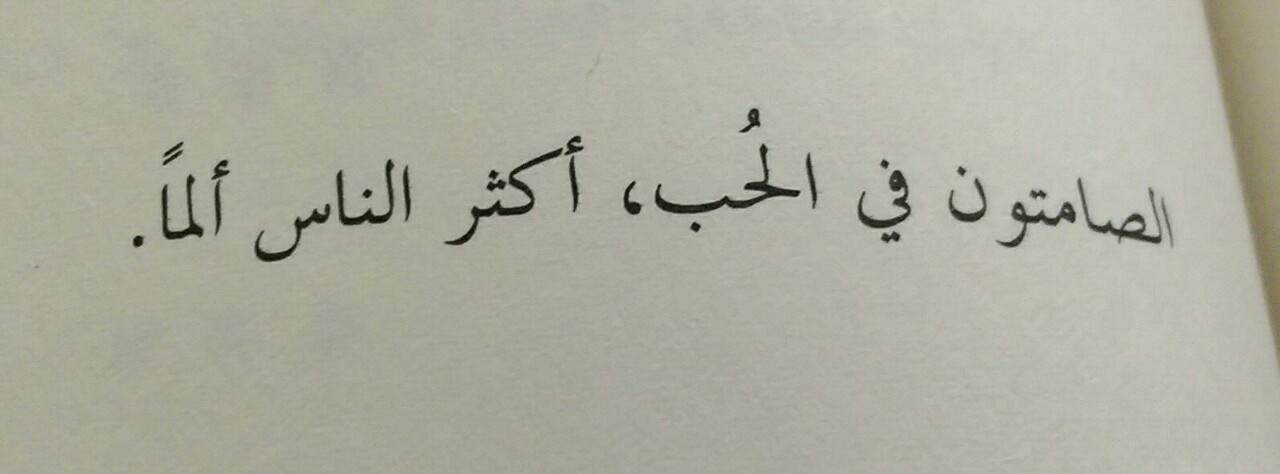 الصامتون في الحُب، أكثر الناس ألماً.